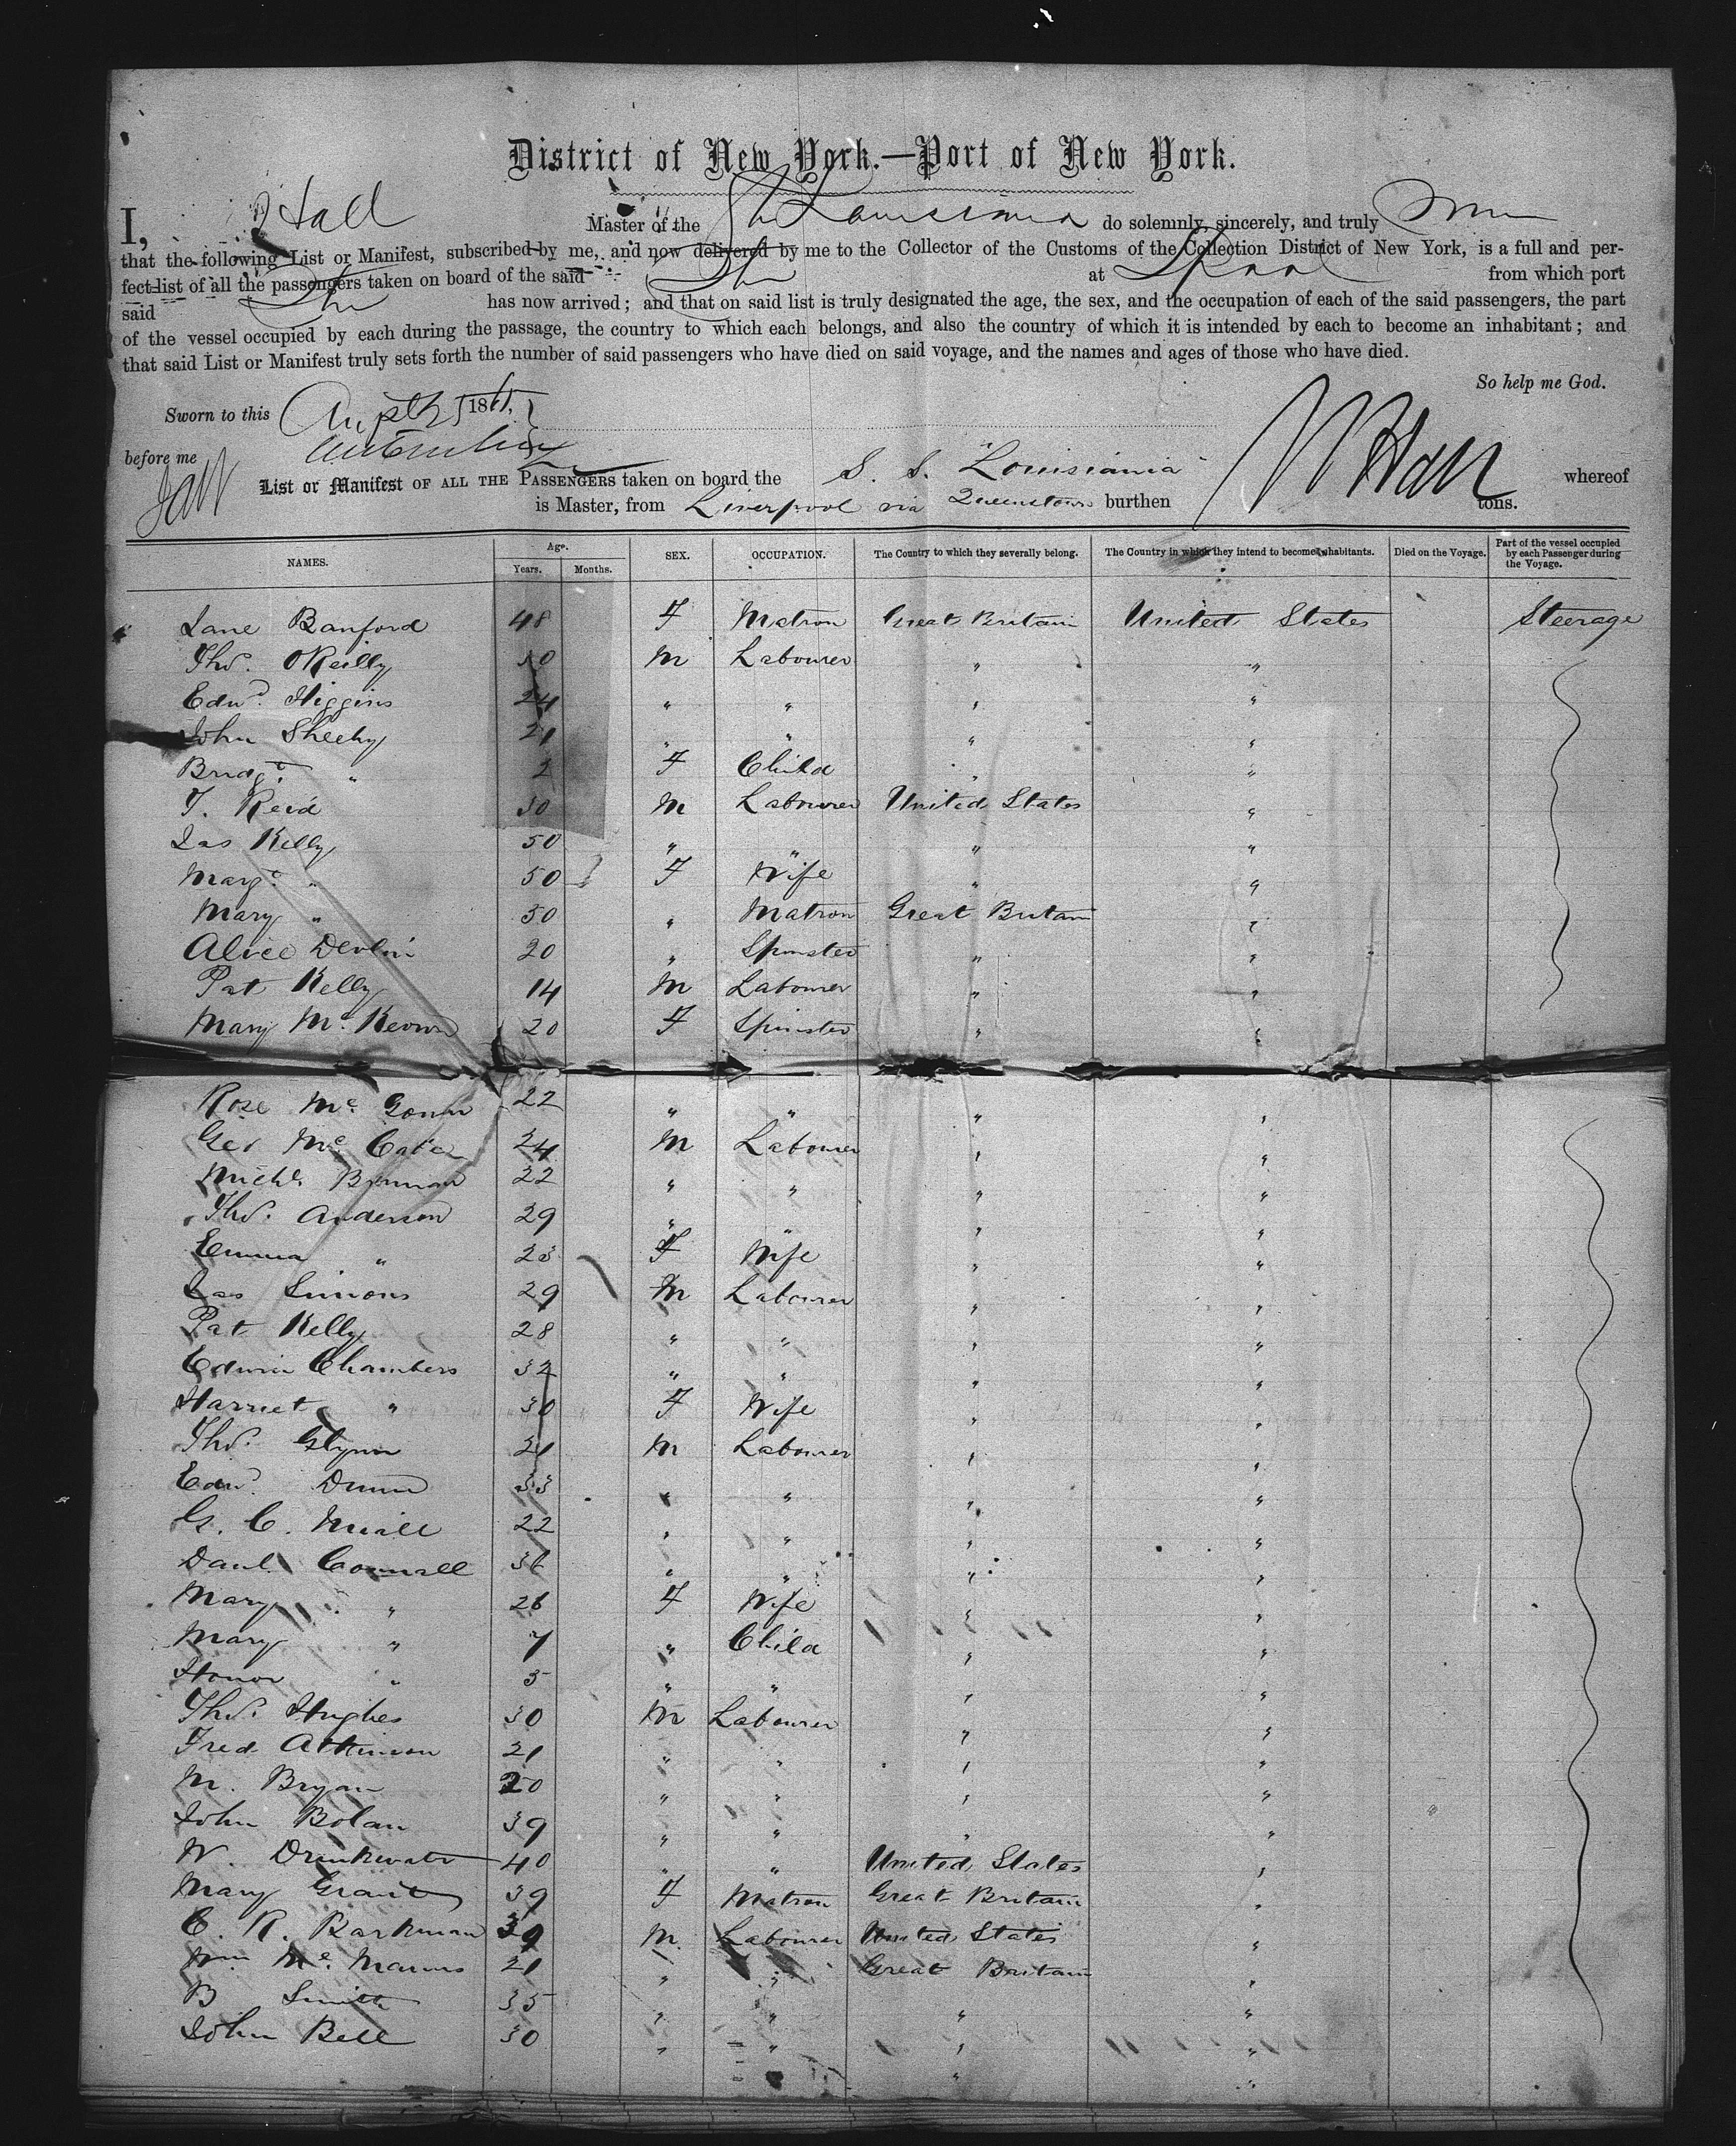 District of New York.—Port of New York.
I, Hall Master of the Str Louisiana do solemnly, sincerely, and truly
that the following List or Manifest, subscribed by me, and now delivered by me to the Collector of the Customs of the Collection District of New York, is a full and per-
fect list of all the passengers taken on board of the said Str at Lpool from which port
said Str has now arrived; and that on said list is truly designated the age, the sex, and the occupation of each of the said passengers, the part
of the vessel occupied by each during the passage, the country to which each belongs, and also the country of which it is intended by each to become an inhabitant; and
that said List or Manifest truly sets forth the number of said passengers who have died on said voyage, and the names and ages of those who have died.
So help me God.
Sworn to this 186
before me
List or Manifest OF ALL THE PASSENGERS taken on board the S. S. Louisiania whereof
Hall is Master, from Liverpool via Queenstown burthen tons.
NAMES. Age. Years. Months. SEX. OCCUPATION. The Country to which they severally belong. The Country in which they intend to become inhabitants. Died on the Voyage. Part of the vessel occupied by each Passenger during the Voyage.
Jane Banford 48 F Matron Great Britain United States Steerage
Thos. OReilly M Labourer " "
Edwd. Higgins 24 " " " "
John Sheehy 21 " " " "
Bridgt. " 2 F Child " "
T. Reid 30 M Labourer United States "
Jas Kelly 50 " " " "
Margt. " 50 F Wife " "
Mary " 30 " Matron Great Britain "
Alice Devlin 20 " Spinster " "
Pat Kelly 14 M Labourer " "
Mary Mc Keown 20 F Spinster " "
Rose Mc 22 " " " "
Geo Mc Cabe 24 M Labourer " "
Michl. Brennan 22 " " " "
Thos. Anderson 29 " " " "
Emma " 23 F Wife " "
Jas Simons 29 M Labourer " "
Pat Kelly 28 " " " "
Edwin Chambers 32 " " " "
Harriet " 30 F Wife " "
Thos. Glynn 21 M Labourer " "
Edwd. Dunn 33 " " " "
G. C. Miall 22 " " " "
Danl. Connall 36 " " " "
Mary " 26 F Wife " "
Mary " 7 " Child " "
Honor " 3 " " " "
Thos. Hughes 30 M Labourer " "
Fred. Atkinson 21 " " " "
M. Bryan 20 " " " "
John Bolan 39 " " " "
W. Drinkwater 40 " " United States "
Mary Grant 39 F Matron Great Britain "
C. R. Barkman 39 M. Labourer United States "
Wm Mc Manus 21 " " Great Britain "
B Smith 35 " " " "
John Bell 30 " " " "